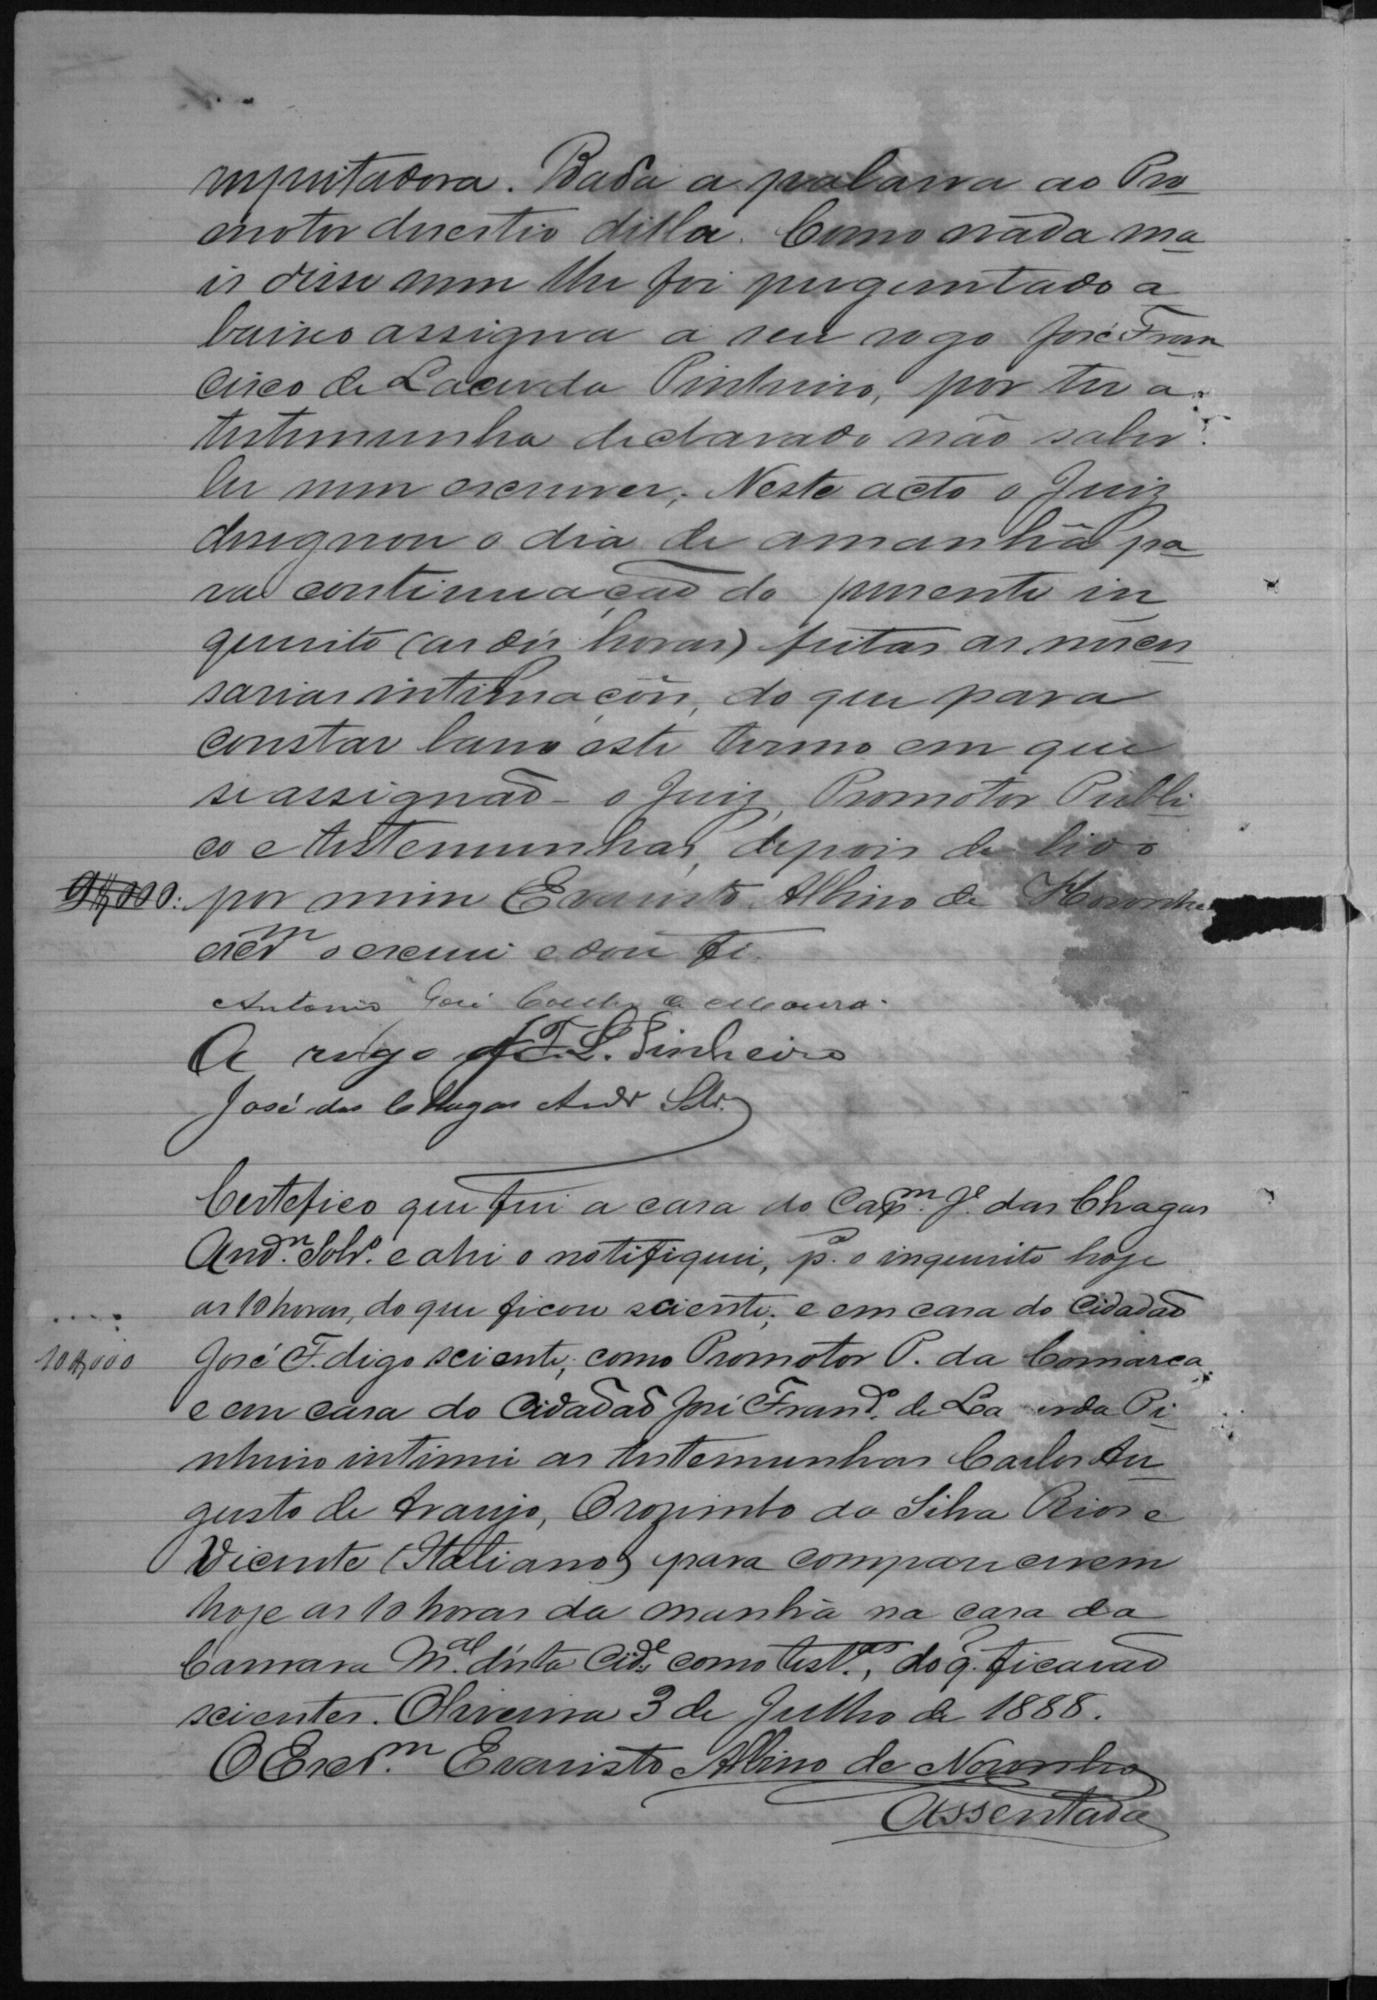 respeitadora. Dada a palavra ao Pro
motor desestio della. Como nada ma
is disse nem lhe foi perguntado a
baixo assigna a seu rogo José Fran
cisco de Lacerda Pinheiro, por ter a
testemunha declarado não saber
ler nem escrever. Neste acto o Juiz
designou o dia de amanhã pa
ra continuação do presente in
querito (as dés horas) feitas as neces
sarias intimações, do que para
constar lavro este termo em que
se assignão - o Juiz, Promotor Publi
co e testemunhas, depois de lido
9$000: por mim Evaristo Albino de Noronha
escr.m o escrevi e dou fé.
Antonio José Coelho de Moura.
A rogo J. F. L. Pinheiro
José das Chagas Andr Sobr.
Certefico que fui a casa do Capm. Je. das Chagas
And.e Sobr.o e ahi o notifiquei, p.a o inquerito hoje
as 10 horas, do que ficou sciente; e em casa do Cidadão
10$000 José F. digo sciente; como Promotor P. da Comarca
e em casa do Cidadão José Fran.co de La erda Pi
nheiro intimei as testemunhas Carlos Au
gusto de Araujo, Orozimbo da Silva Rios e
Vicente (Italiano) para comparecerem
hoje as 10 horas da manhã na casa da
Camara M.al désta Cid.e como test.as, do q. ficarão
scientes. Oliveira 3 de Julho de 1888.
O Escr.m Evaristo Albino de Noronha
Assentada